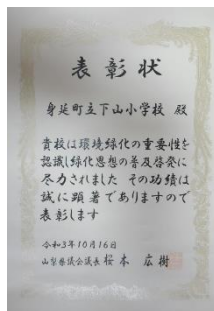 表彰状
身延町立下山小学校 殿
貴校は環境緑化の重要性を
認識し緑化思想の普及啓発に
尽力されました その功績は
誠に顕著でありますので
表彰します
令和3年10月16日
山梨県議会議長 桜本 広樹